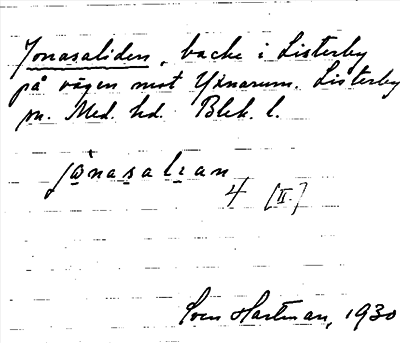 Jonasaliden, backe i Listerby
på vägen mot Yxnarum. Listerby
sn. Med. hd. Blek. l.
jònasalian
4 [II.]
Sven Hartman, 1930